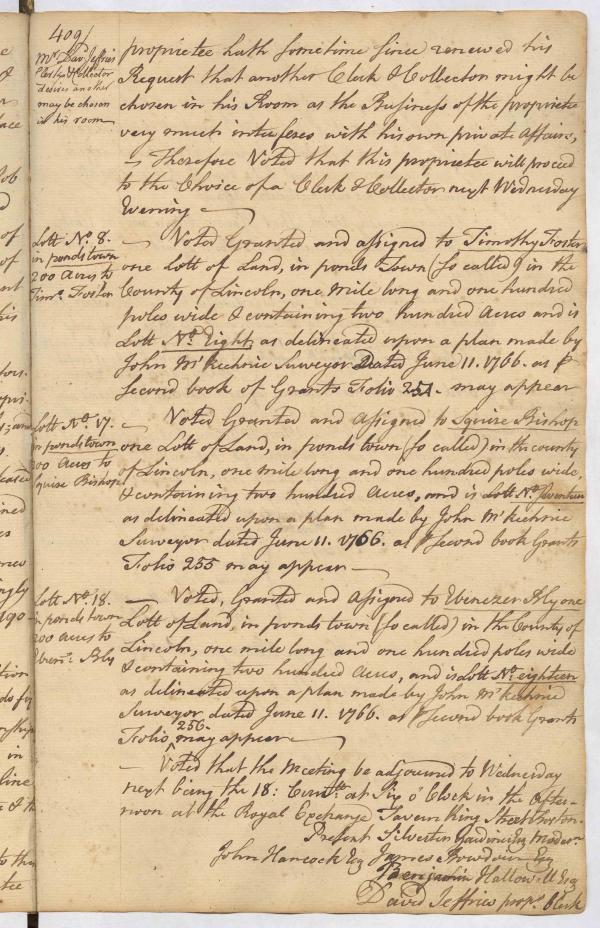 409
Mr. Davd. Jeffries
Clerk & Collector
desires another
may be chosen
in his room
proprietee hath sometime since renewed his
Request that another Clerk & Collector might be
chosen in his Room as the Business of the proprietee
very much interferes with his own private Affairs,
— Therefore Voted that this proprietee will proceed
to the Choice of a Clerk & Collector next Wednesday
Evening —
Lott No. 8.
in ponds town
200 Acres to
Timo. Foster
— Voted Granted and assigned to Timothy Foster
one Lott of Land, in ponds Town (so called) in the
County of Lincoln, one mile long and one hundred
poles wide & containing two hundred Acres and is
Lott No. Eight, as delineated upon a plan made by
John McKechnie Surveyor Dated June 11. 1766. as p
Second book of Grants Folio 254. may appear
Lott No. 17.
in ponds town
200 Acres to
Squire Bishop
— Voted Granted and Assigned to Squire Bishop
one Lott of Land, in ponds town (so called) in the county
of Lincoln, one mile long and one hundred poles wide,
& containing two hundred Acres, and is Lott No. Seventeen
as delineated upon a plan made by John McKechnie
Surveyor dated June 11. 1766. as p Second book Grants
Folio 255 may appear —
Lott No. 18.
in ponds town
200 Acres to
Ebenr. Bly
— Voted, Granted and Assigned to Ebenezer Bly one
Lott of Land, in ponds town (so called) in the County of
Lincoln, one mile long and one hundred poles wide
& containing two hundred Acres, and is Lott No. eighteen
as delineated upon a plan made by John McKechnie
Surveyor dated June 11. 1766. as p Second book Grants
Folio 256 may appear —
— Voted that the Meeting be adjourned to Wednesday
next being the 18: Currtt. at Six o'Clock in the After-
noon at the Royal Exchange Tavern King Street Boston.
Present Silvester Gardiner Esq Moder.
John Hancock Esq James Bowdoin Esq
Benjamin Hallowell Esq
David Jeffries prop. Clerk